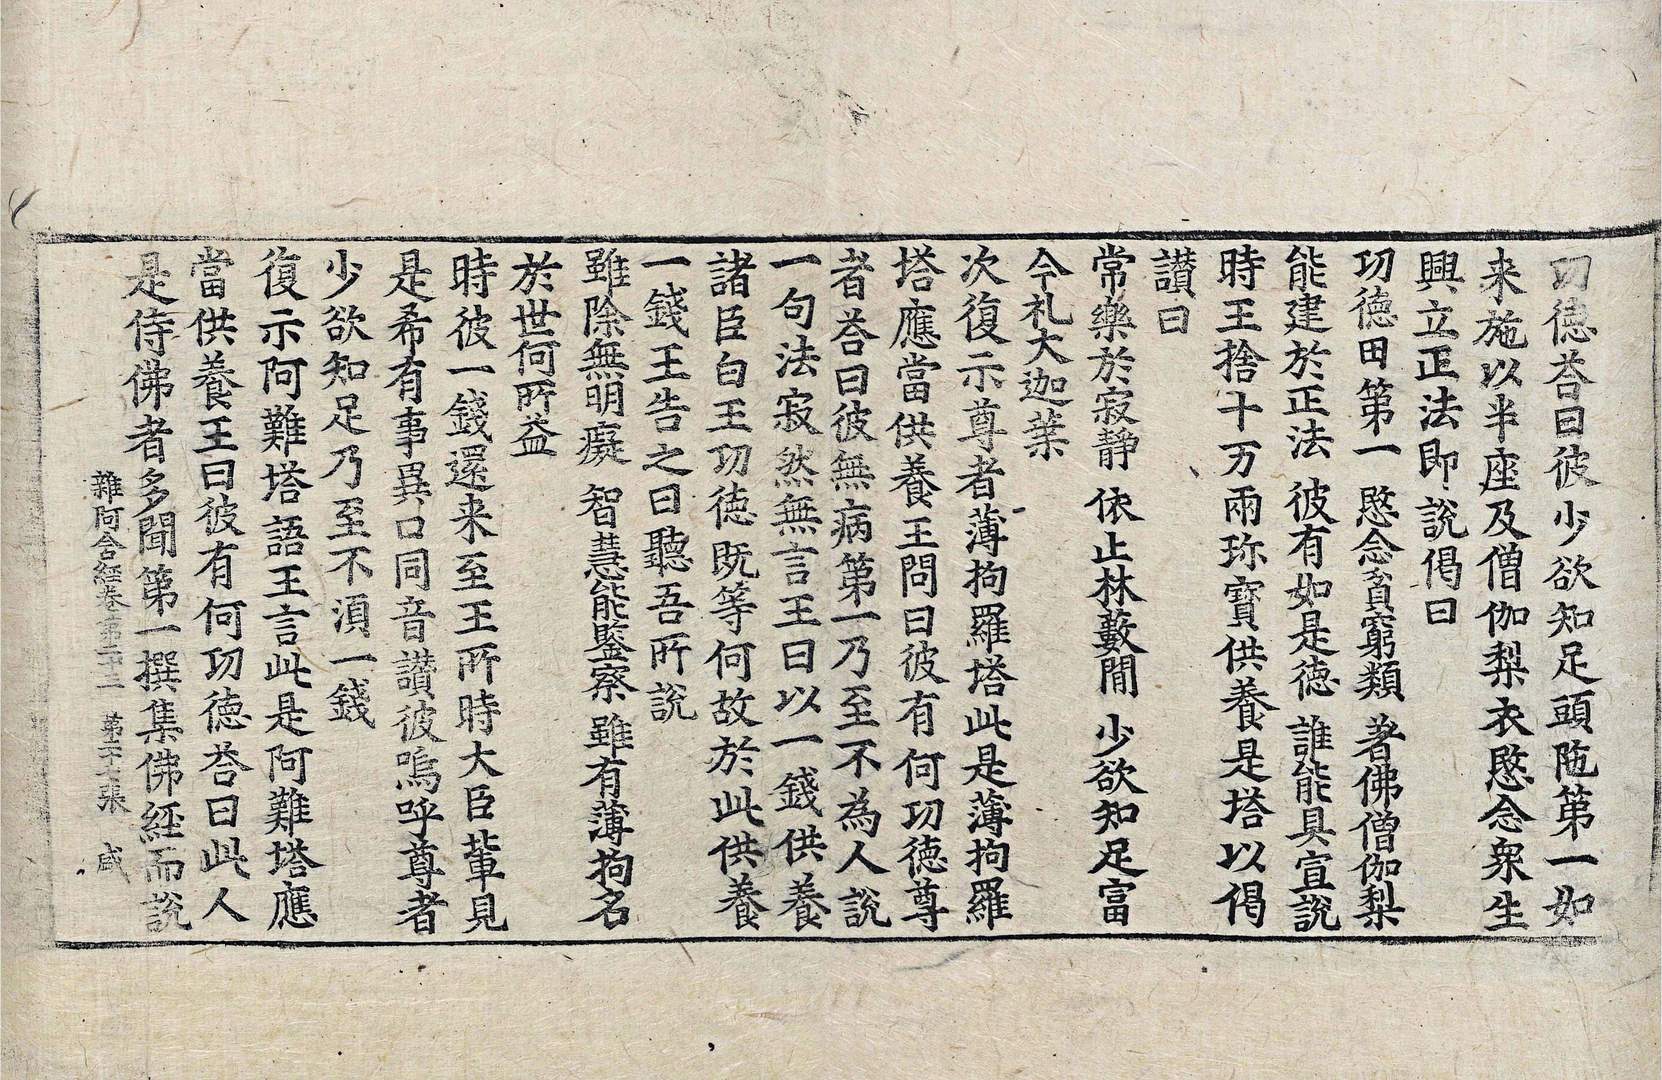 功德荅曰彼少欲知足頭陁第一如
来施以半座及僧伽梨衣愍念衆生
興立正法即說偈曰
功德田第一 愍念貧窮類 著佛僧伽梨
能建於正法 彼有如是德 誰能具宣說
時王捨十万兩珎寶供養是塔以偈
讃曰
常樂於寂靜 依止林藪間 少欲知足富
今礼大迦葉
次復示尊者薄拘羅塔此是薄拘羅
塔應當供養王問曰彼有何功德尊
者荅曰彼無病第一乃至不為人說
一句法寂然無言王曰以一錢供養
諸臣白王功徳既等何故於此供養
一錢王告之曰聽吾所說
雖除無明癡 智慧能鑒察 雖有薄拘名
於世何所益
時彼一錢還来至王所時大臣輩見
是希有事異口同音讃彼嗚呼尊者
少欲知足乃至不湏一錢
復示阿難塔語王言此是阿難塔應
當供養王曰彼有何功德荅曰此人
是侍佛者多聞第一撰集佛經而說
雜阿含經卷第二十三 第二十七張 咸